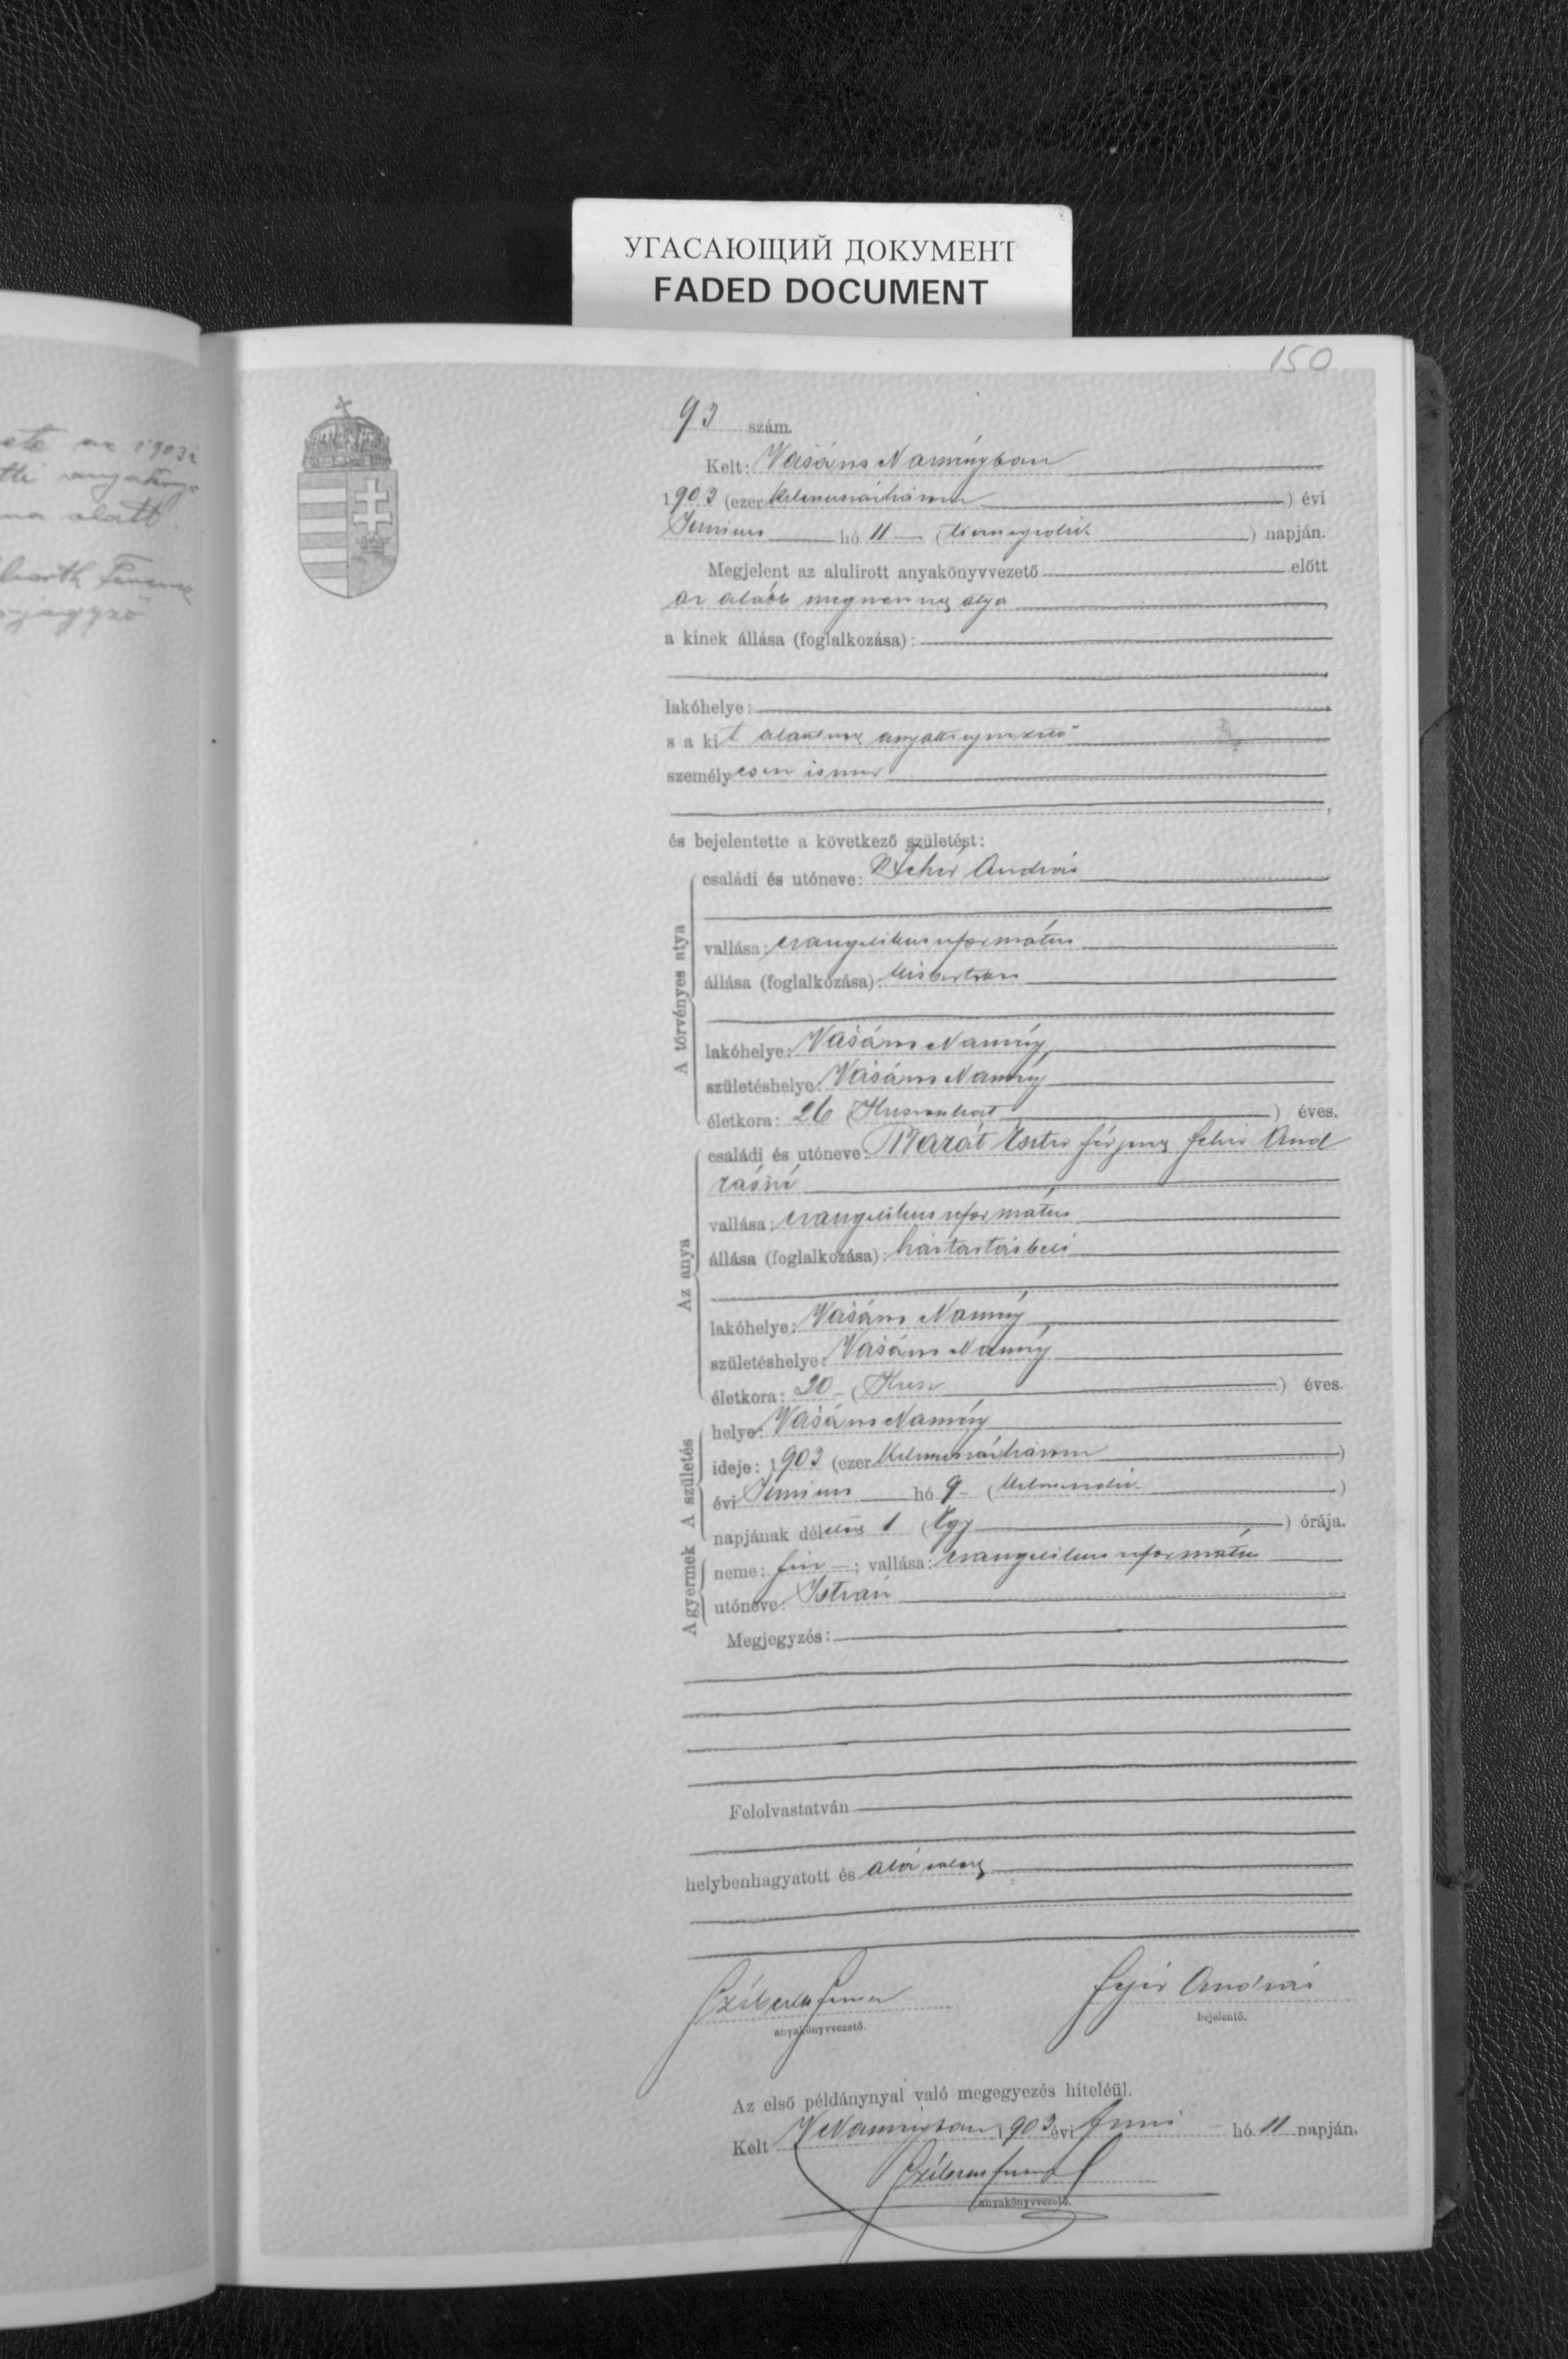 УГАСАЮЩИЙ ДОКУМЕНТ
FADED DOCUMENT
150
93 szám.
Kelt: Vásáros Naményban
1903 (ezer kilencszázhárom) évi
Junius hó 11 (tizenegyedik) napján.
Megjelent az alulirott anyakönyvvezető előtt
az alább megnevezett atya
a kinek állása (foglalkozása):
lakóhelye:
s a kit alantirott
személyesen ismer
és bejelentette a következő születést:
A törvényes atya
családi és utóneve: Fehér András
vallása: evangelikus református
állása (foglalkozása):
lakóhelye: Vásáros Namény
születéshelye: Vásáros Namény
életkora: 26 (Huszonhat) éves.
Az anya
családi és utóneve: Barát Eszter férjezett Fehér And
rásné
vallása: evangelikus református
állása (foglalkozása): háztartásbeli
lakóhelye: Vásáros Namény
születéshelye: Vásáros Namény
életkora: 20 (Husz) éves.
A születés
helye: Vásáros Namény
ideje: 1903 (ezer kilencszázhárom)
évi Junius hó 9 (kilencedik)
napjának délelőtt 1 (Egy) órája.
A gyermek
neme: fiu; vallása: evangelikus református
utóneve: István
Megjegyzés:
Felolvastatván
helybenhagyatott és aláiratott
fejér András
anyakönyvvezető.
bejelentő.
Az első példánynyal való megegyezés hiteléül.
Kelt VNaményban 1903 évi Juni hó 11 napján.
anyakönyvvezető.